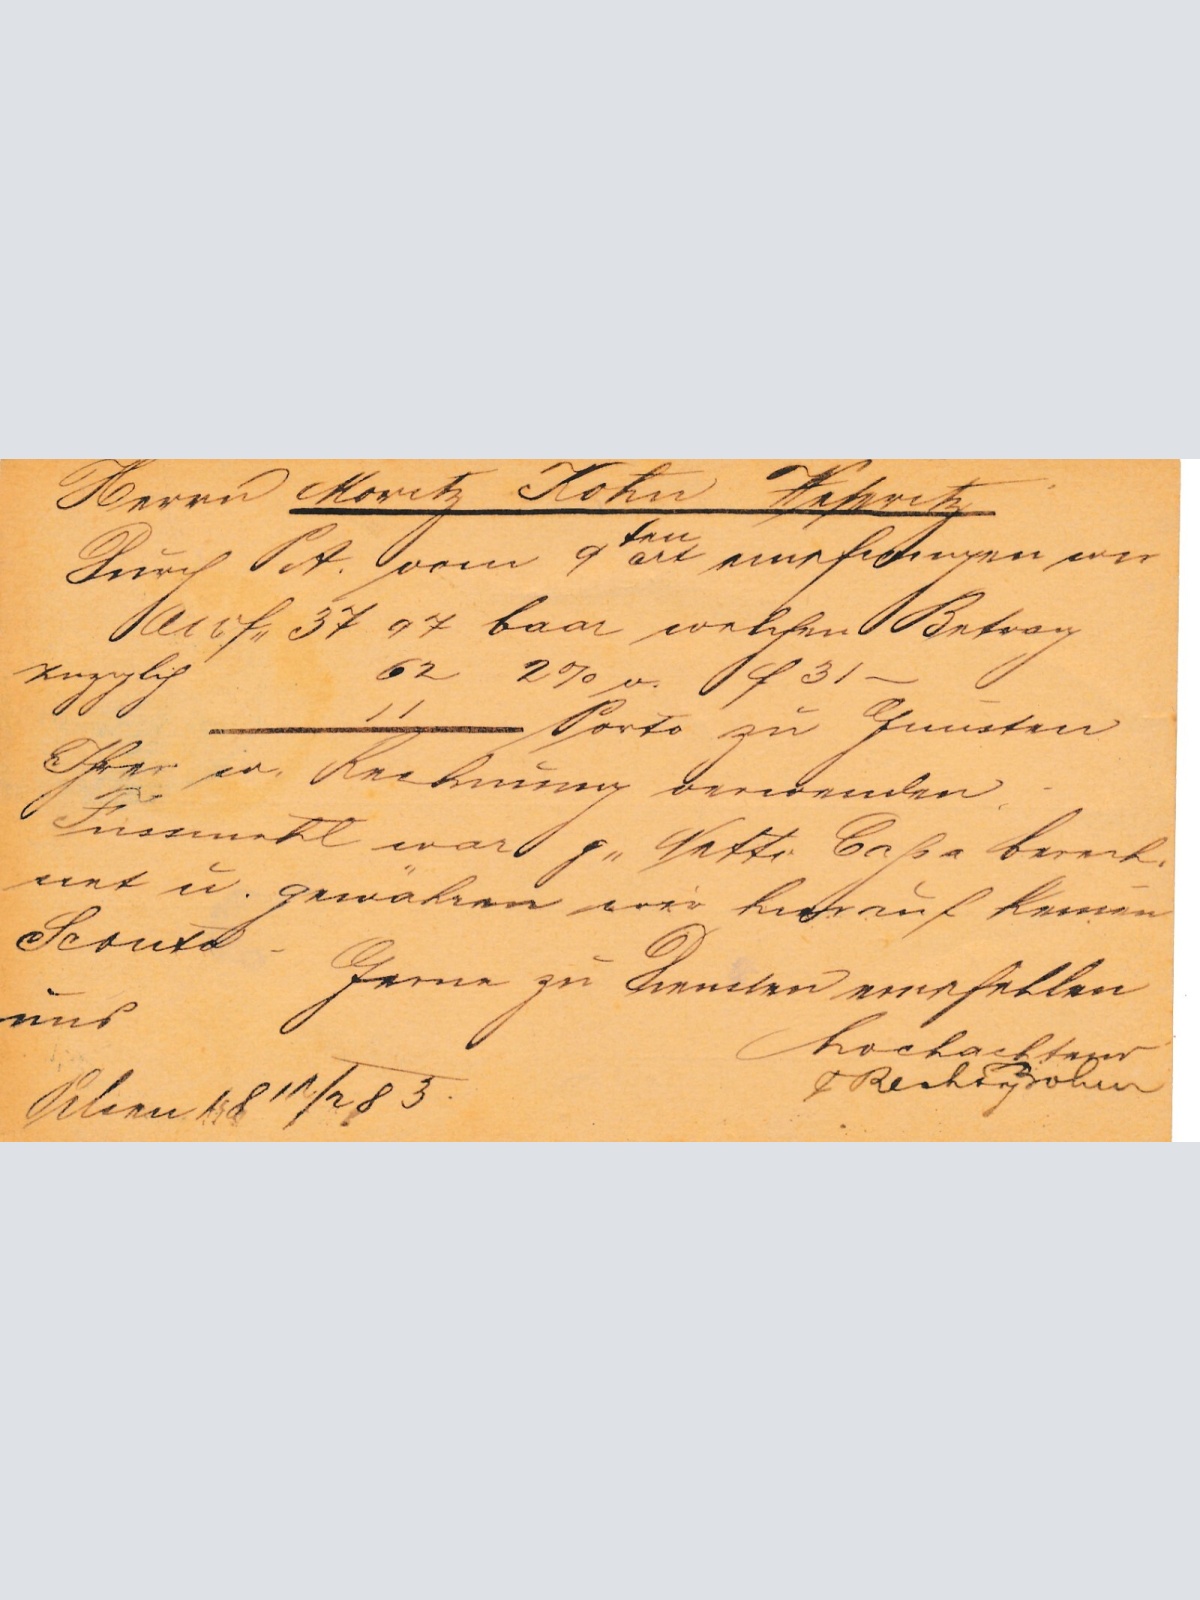 Herrn Moritz Kohn
Durch P.A. vom 9ten empfingen wir
37 97 baar welchen Betrag
zuzüglich 62 2% v. f 31 –
11 Porto zu Gunsten
Ihrer w. Rechnung verwenden.
Fussmehl war p„ Netto Cassa berech-
net u. gewähren wir hierauf keinen
Sconto –
Gerne zu Diensten empfehlen
uns
hochachtend
Pilsen 18 11/12 83.